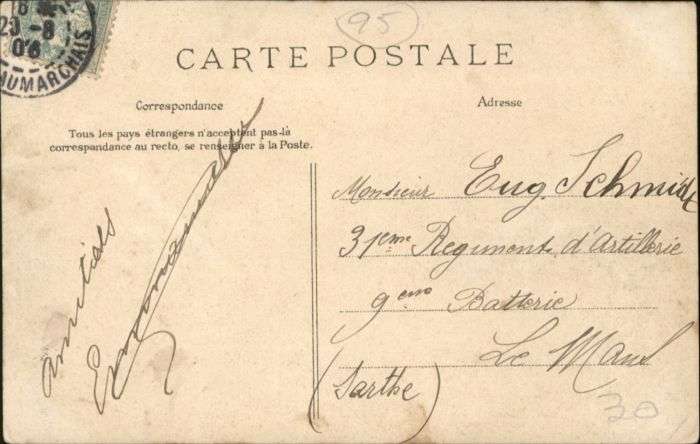 95
20-8
06
AUMARCHAIS
CARTE POSTALE
Correspondance
Adresse
Tous les pays étrangers n'acceptent pas-là
correspondance au recto, se renseigner à la Poste.
amitiés
Monsieur Eug. Schmidt
31eme Regiment d'Artillerie
9eme Batterie
Le Mans
(Sarthe)
20